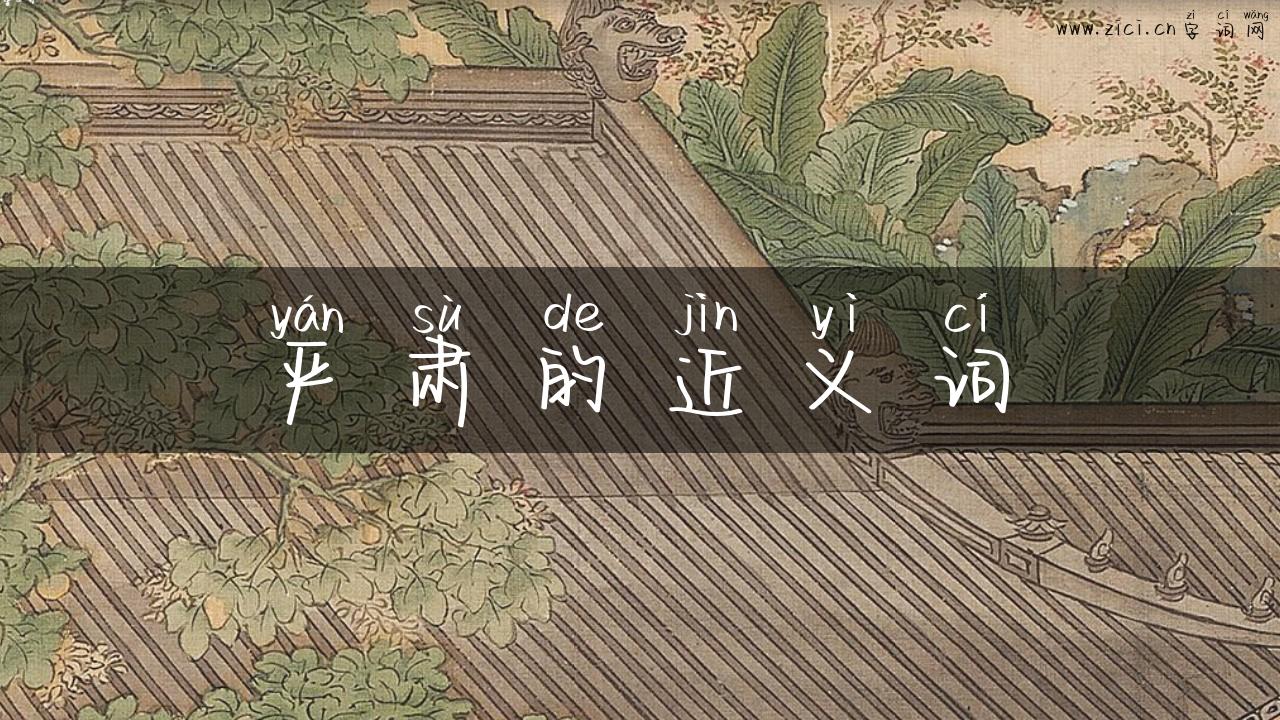 zì cí wǎng
www.zici.cn 字词网
yán sù de jìn yì cí
严肃的近义词